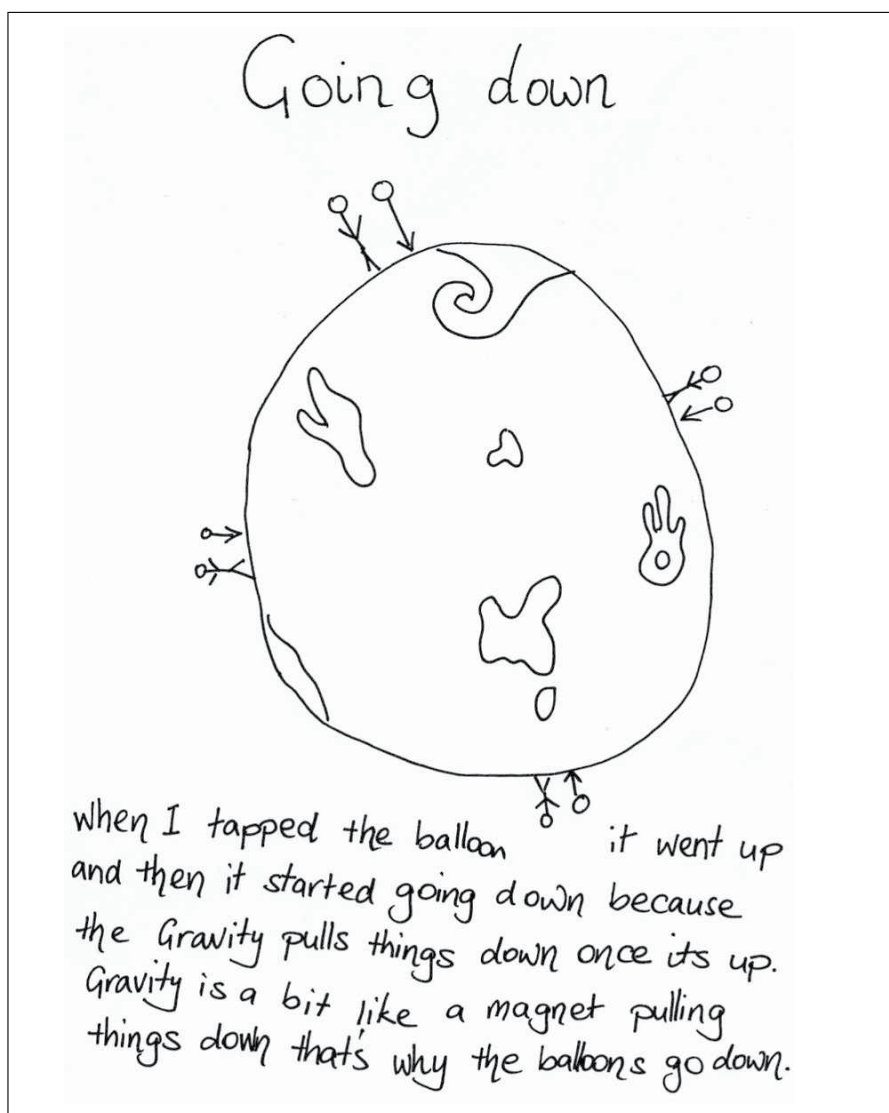 Going down
when I tapped the balloon it went up
and then it started going down because
the Gravity pulls things down once its up.
Gravity is a bit like a magnet pulling
things down that's why the balloons go down.